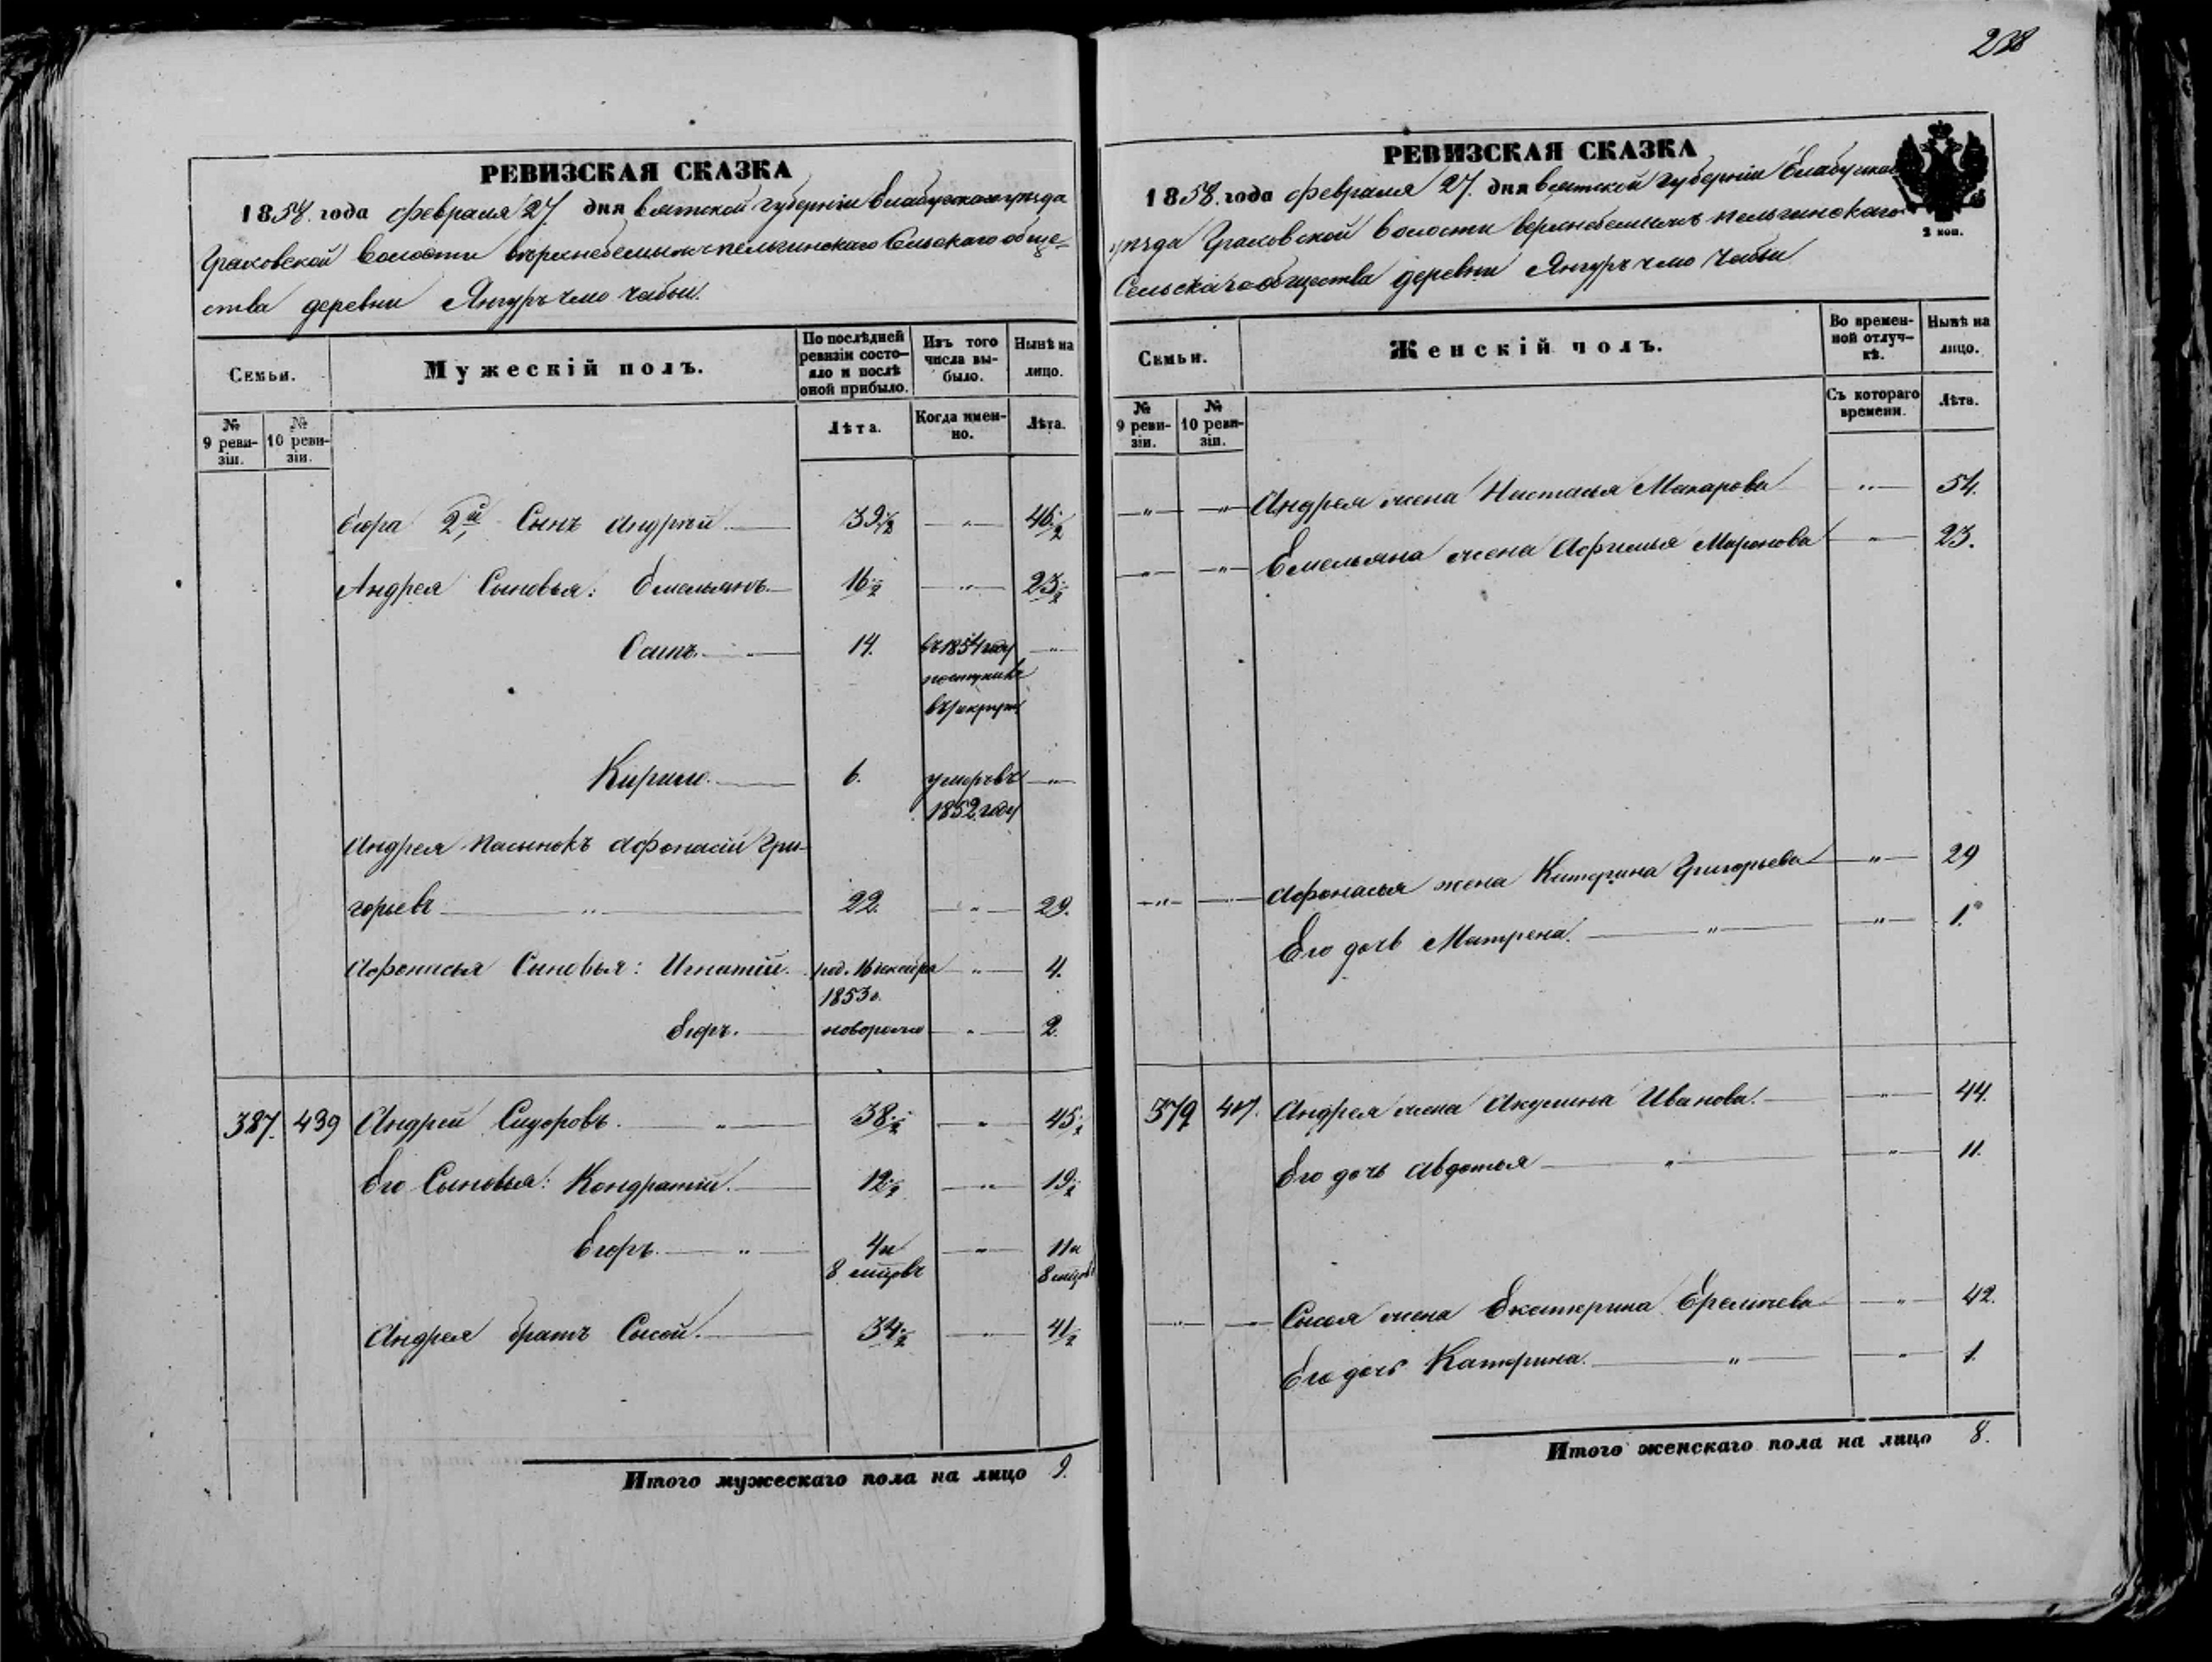 238
РЕВИЗСКАЯ СКАЗКА
1858. года февраля 27. дня вятской губерніи Елабужскаго уѣзда
Граховской волости верхнебемыжъ пельгинскаго Сельскаго обще-
ства деревни Янгуръ чмо чабьи.
Семьи.
Мужескій полъ.
По послѣдней ревизіи состо-
яло и послѣ оной прибыло.
Изъ того числа вы-
было.
Нынѣ на лицо.
№ 9 реви-
зіи.
№ 10 реви-
зіи.
Лѣта.
Когда имен-
но.
Лѣта.
Егора 2й, Сынъ Андрѣй 39 1/2 " 46 1/2
Андрея Сыновья: Емельянъ 16 1/2 " 23 1/2
Осипъ. 14. въ 1854 году "
поступилъ
въ рекруты
Кирило. 6. умеръ въ "
1852 году
Андрея пасынокъ Афонасій Гри-
горьевъ " 22. " 29.
Афонасья Сыновья: Игнатій. род. 16 декабря " 4.
1853 г.
Егоръ. новорож " 2.
387. 439 Андрей Сидоровъ. " 38 1/2 " 45 1/2
Его Сыновья: Кондратій. 12 1/2 " 19 1/2
Егоръ. " 4 и " 11 и
8 мцовъ 8 мцовъ
Андрея братъ Сысой. 34 1/2 " 41 1/2
Итого мужескаго пола на лицо 9.
РЕВИЗСКАЯ СКАЗКА
1858. года февраля 27. дня вятской губерніи Елабужскаго
2 коп.
уѣзда Граховской волости верхнебемыжъ пельгинскаго
Сельскаго общества деревни Янгуръ чмо чабьи
Семьи.
Женскій полъ.
Во времен-
ной отлуч-
кѣ.
Нынѣ на лицо.
№ 9 реви-
зіи.
№ 10 реви-
зіи.
Съ котораго времени.
Лѣта.
" " Андрея жена Настасья Макарова " 54.
" " Емельяна жена Афимья Миронова " 23.
" Афонасья жена Катерина Григорьева " 29
Его дочь Матрена. " " 1.
379 Андрея жена Акулина Иванова. " 44.
Его дочь Авдотья " " 11.
" Сысоя жена Екатерина " 42.
Его дочь Катерина. " " 1.
Итого женскаго пола на лицо 8.